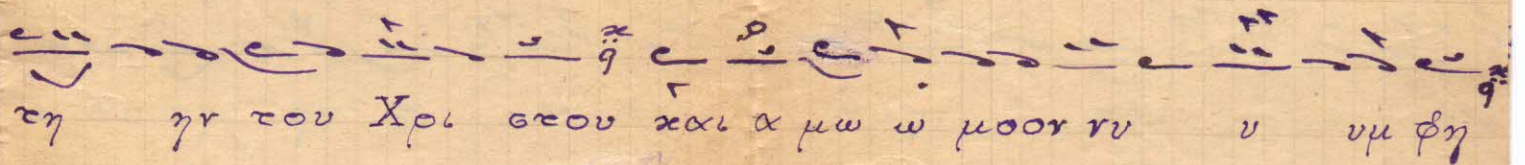 τη ην του Χρι στου και α μω ω μοον νυ υ υμ φη